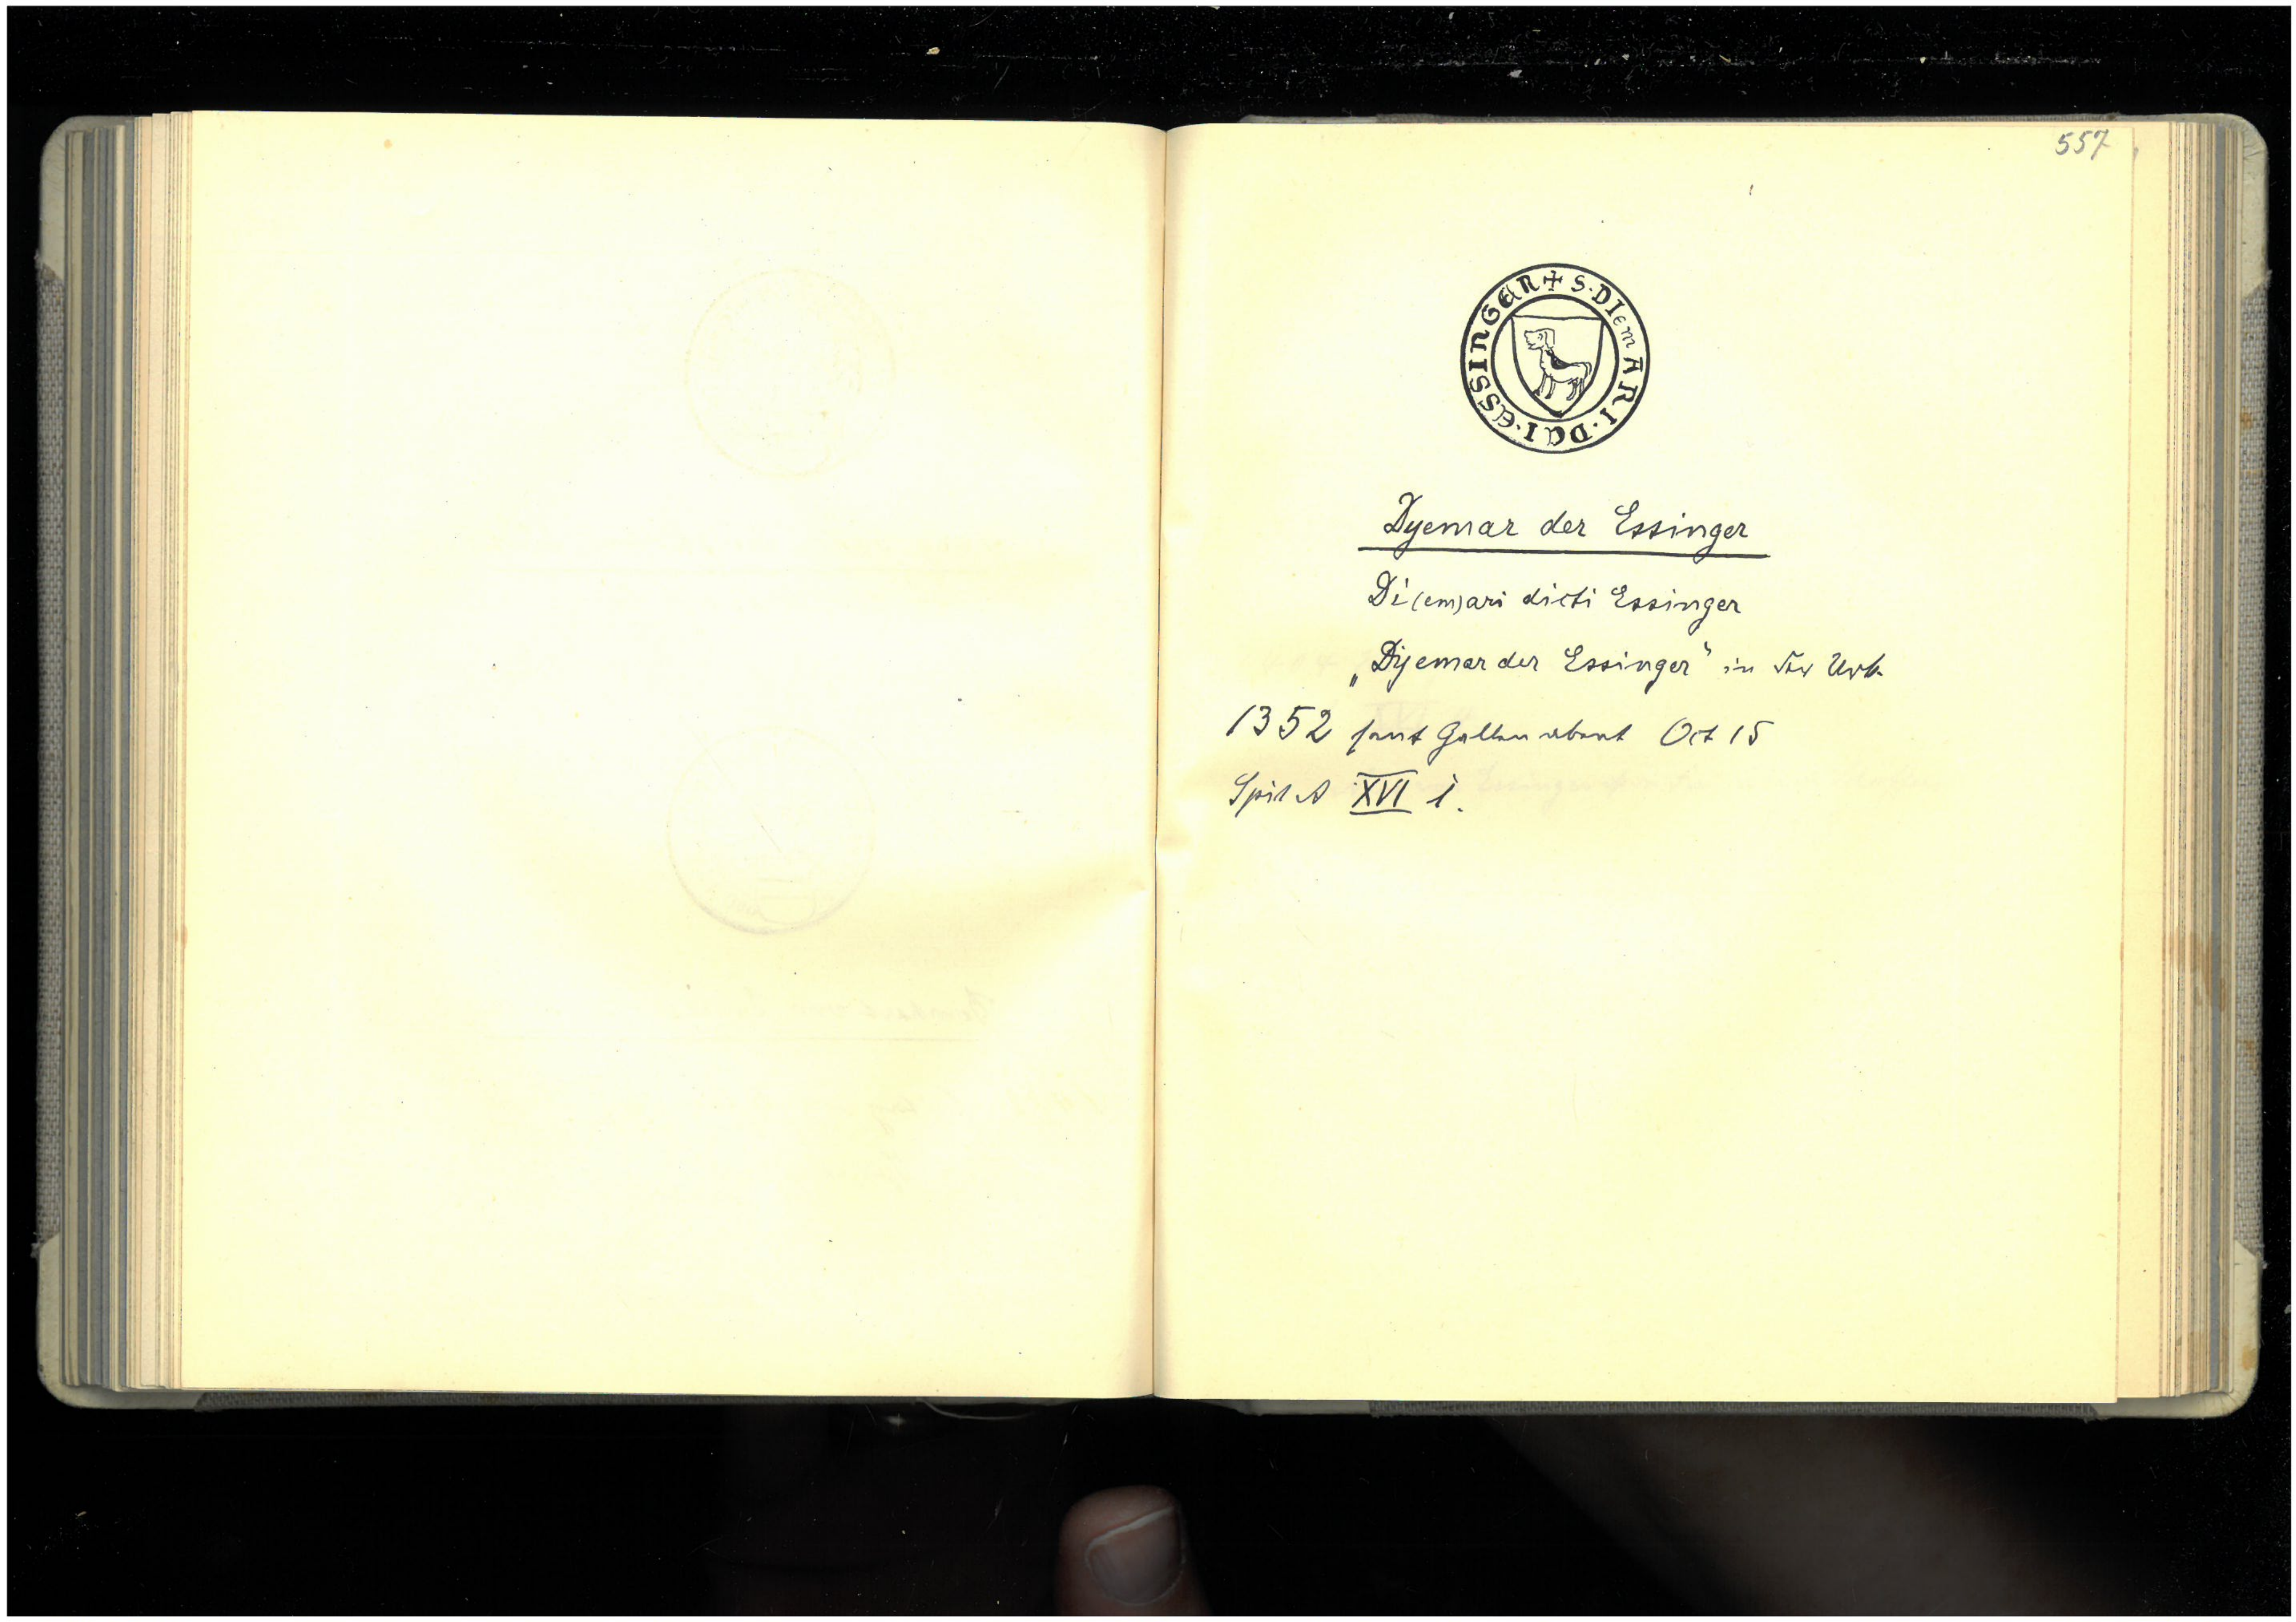 557
+ S·DIemARI·DCI·ESSINGER
Dyemar der Essinger
Di(em)ari dicti Essinger
„Dyemar der Essinger" in der Urk.
1352 sant Gallen abent Oct 15
Spit A XVI i.